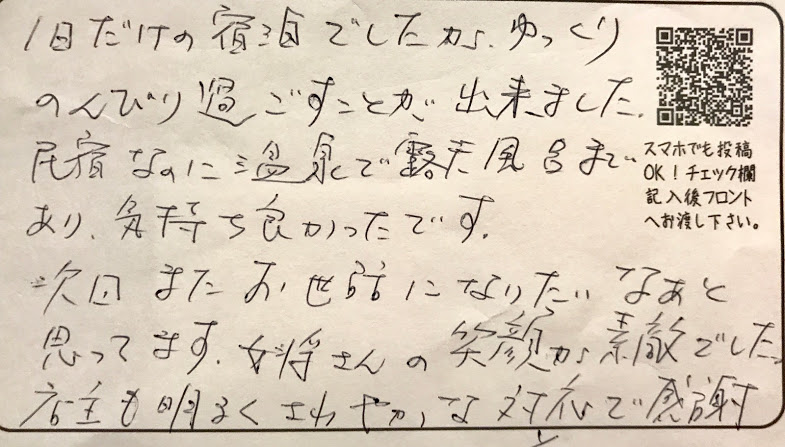 1日だけの宿泊でしたが、ゆっくり
のんびり過ごすことが出来ました。
民宿なのに温泉で露天風呂まで
あり、気持ち良かったです。
次回またお世話になりたいなあと
思ってます。女将さんの笑顔が素敵でした。
店主も明るくさわやかな対応で感謝
スマホでも投稿
OK！チェック欄
記入後フロント
へお渡し下さい。